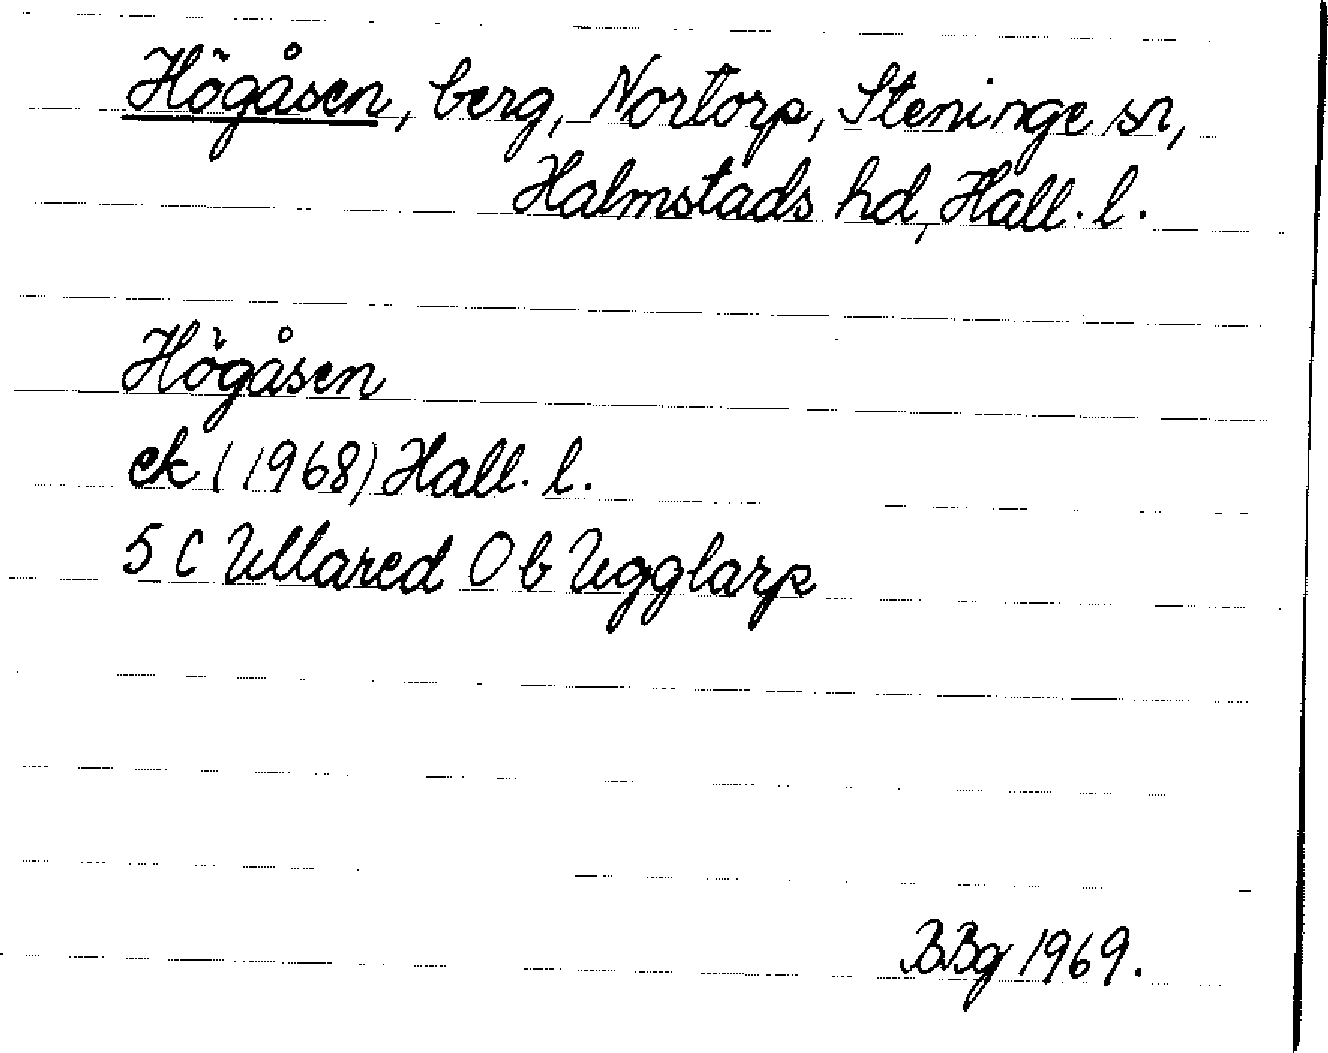 Högåsen, berg, Nortorp, Steninge sn,
Halmstads hd, Hall. l.
Högåsen
ek (1968) Hall. l.
5 C Ullared 0 b Ugglarp
BBg 1969.